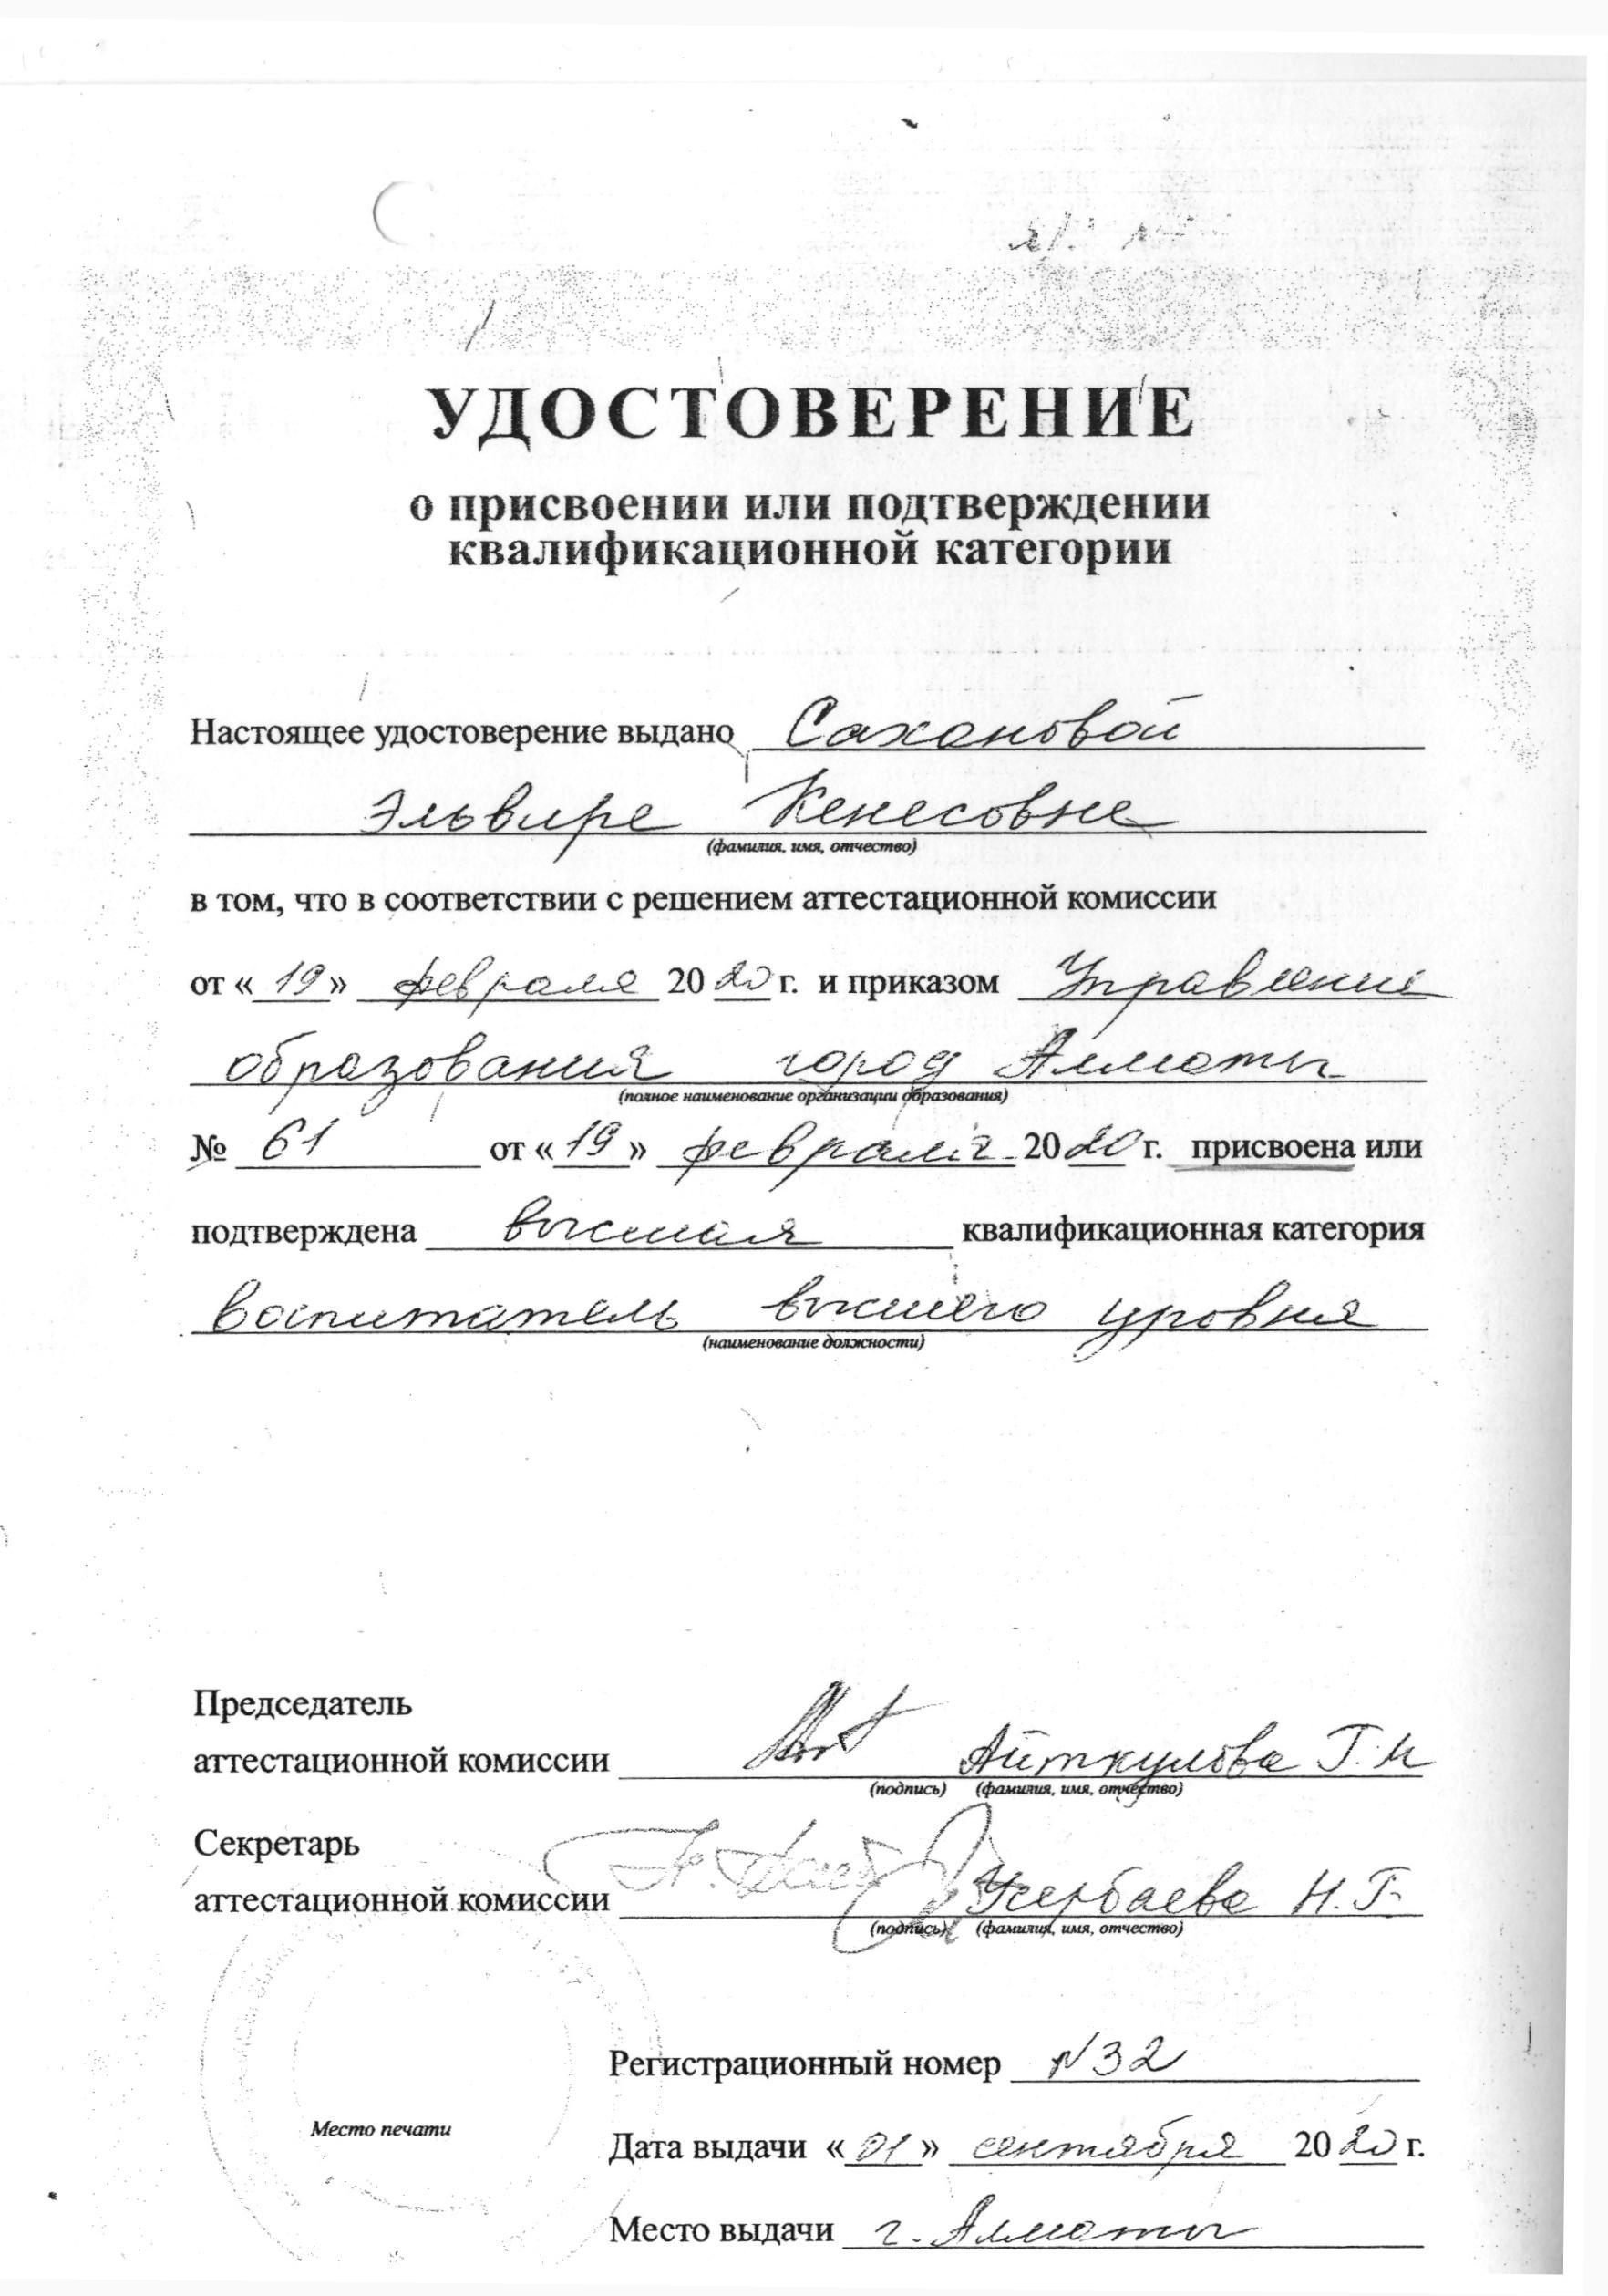 УДОСТОВЕРЕНИЕ
о присвоении или подтверждении
квалификационной категории
Настоящее удостоверение выдано Сахановой
Эльвире Кенесовне
(фамилия, имя, отчество)
в том, что в соответствии с решением аттестационной комиссии
от «19» февраля 2020 г. и приказом Управление
образования город Алматы
(полное наименование организации образования)
№ 61 от «19» февраля 2020 г. присвоена или
подтверждена высшая квалификационная категория
воспитатель высшего уровня
(наименование должности)
Председатель
аттестационной комиссии Айткулова Г. И
(подпись) (фамилия, имя, отчество)
Секретарь
аттестационной комиссии Усербаева Н. Г.
(подпись) (фамилия, имя, отчество)
Регистрационный номер N32
Место печати
Дата выдачи «01» сентября 2020 г.
Место выдачи г. Алматы